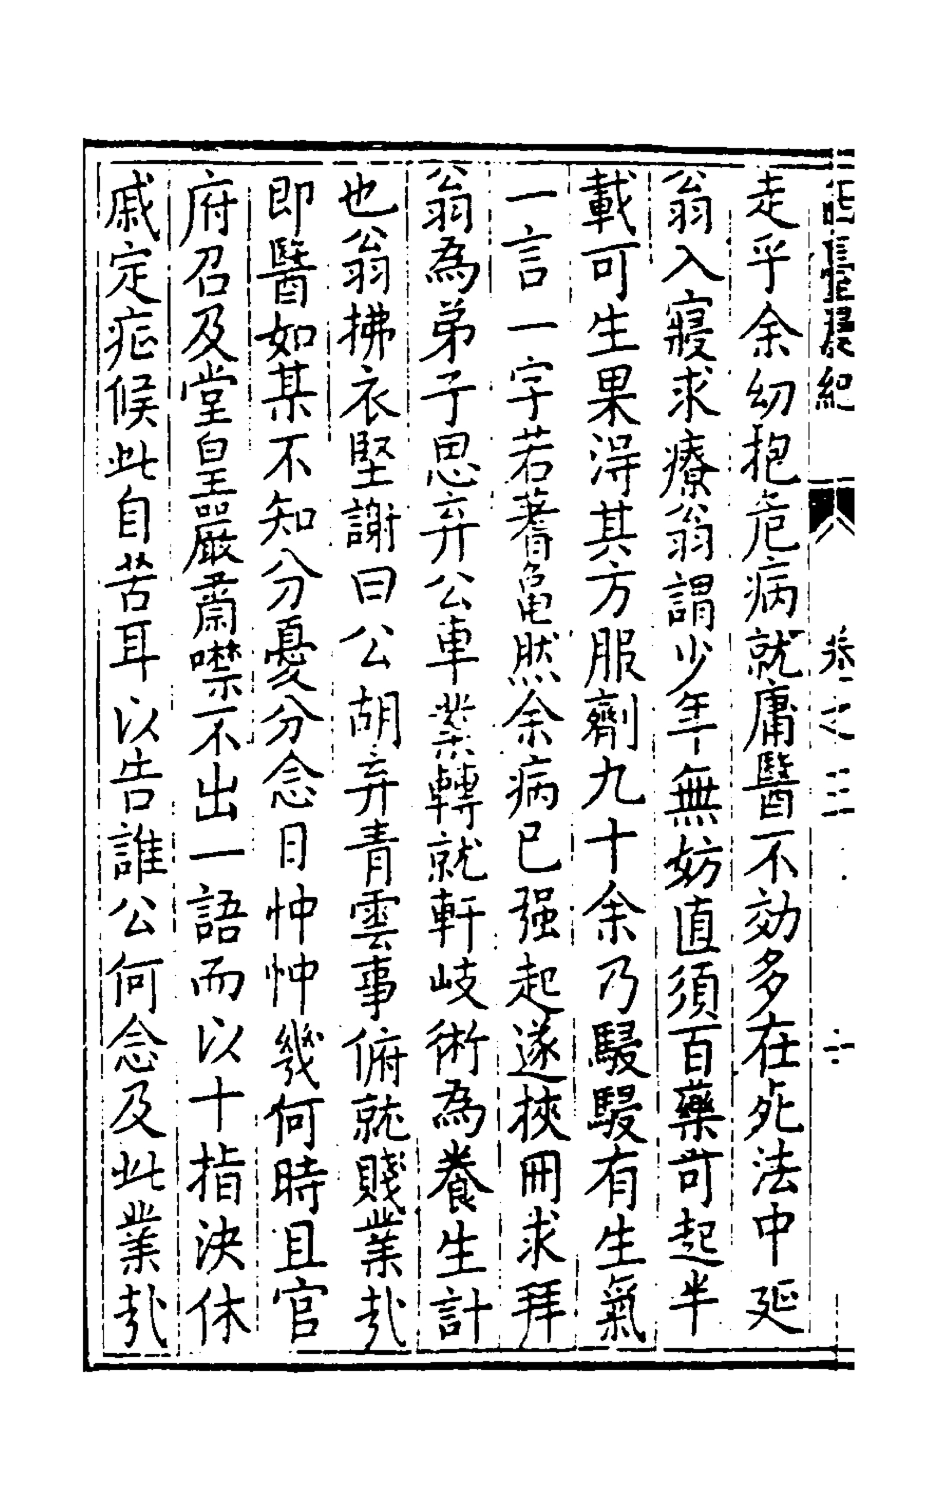 走乎余幼抱危病就庸醫不効多在死法中延
翁入寢求療翁謂少年無妨直須百藥苛起半
載可生果淂其方服劑九十余乃駸駸有生氣
一言一字若蓍龜然余病已强起遂挾冊求拜
翁為弟子思弃公車業轉就軒岐術為養生計
也翁拂衣堅謝曰公胡弃青雲事俯就賤業㢤
即醫如某不知分憂分念日忡忡幾何時且官
府召及堂皇嚴肅噤不出一語而以十指決休
戚定症候此自苦耳以告誰公何念及此業㢤
卷之三
二